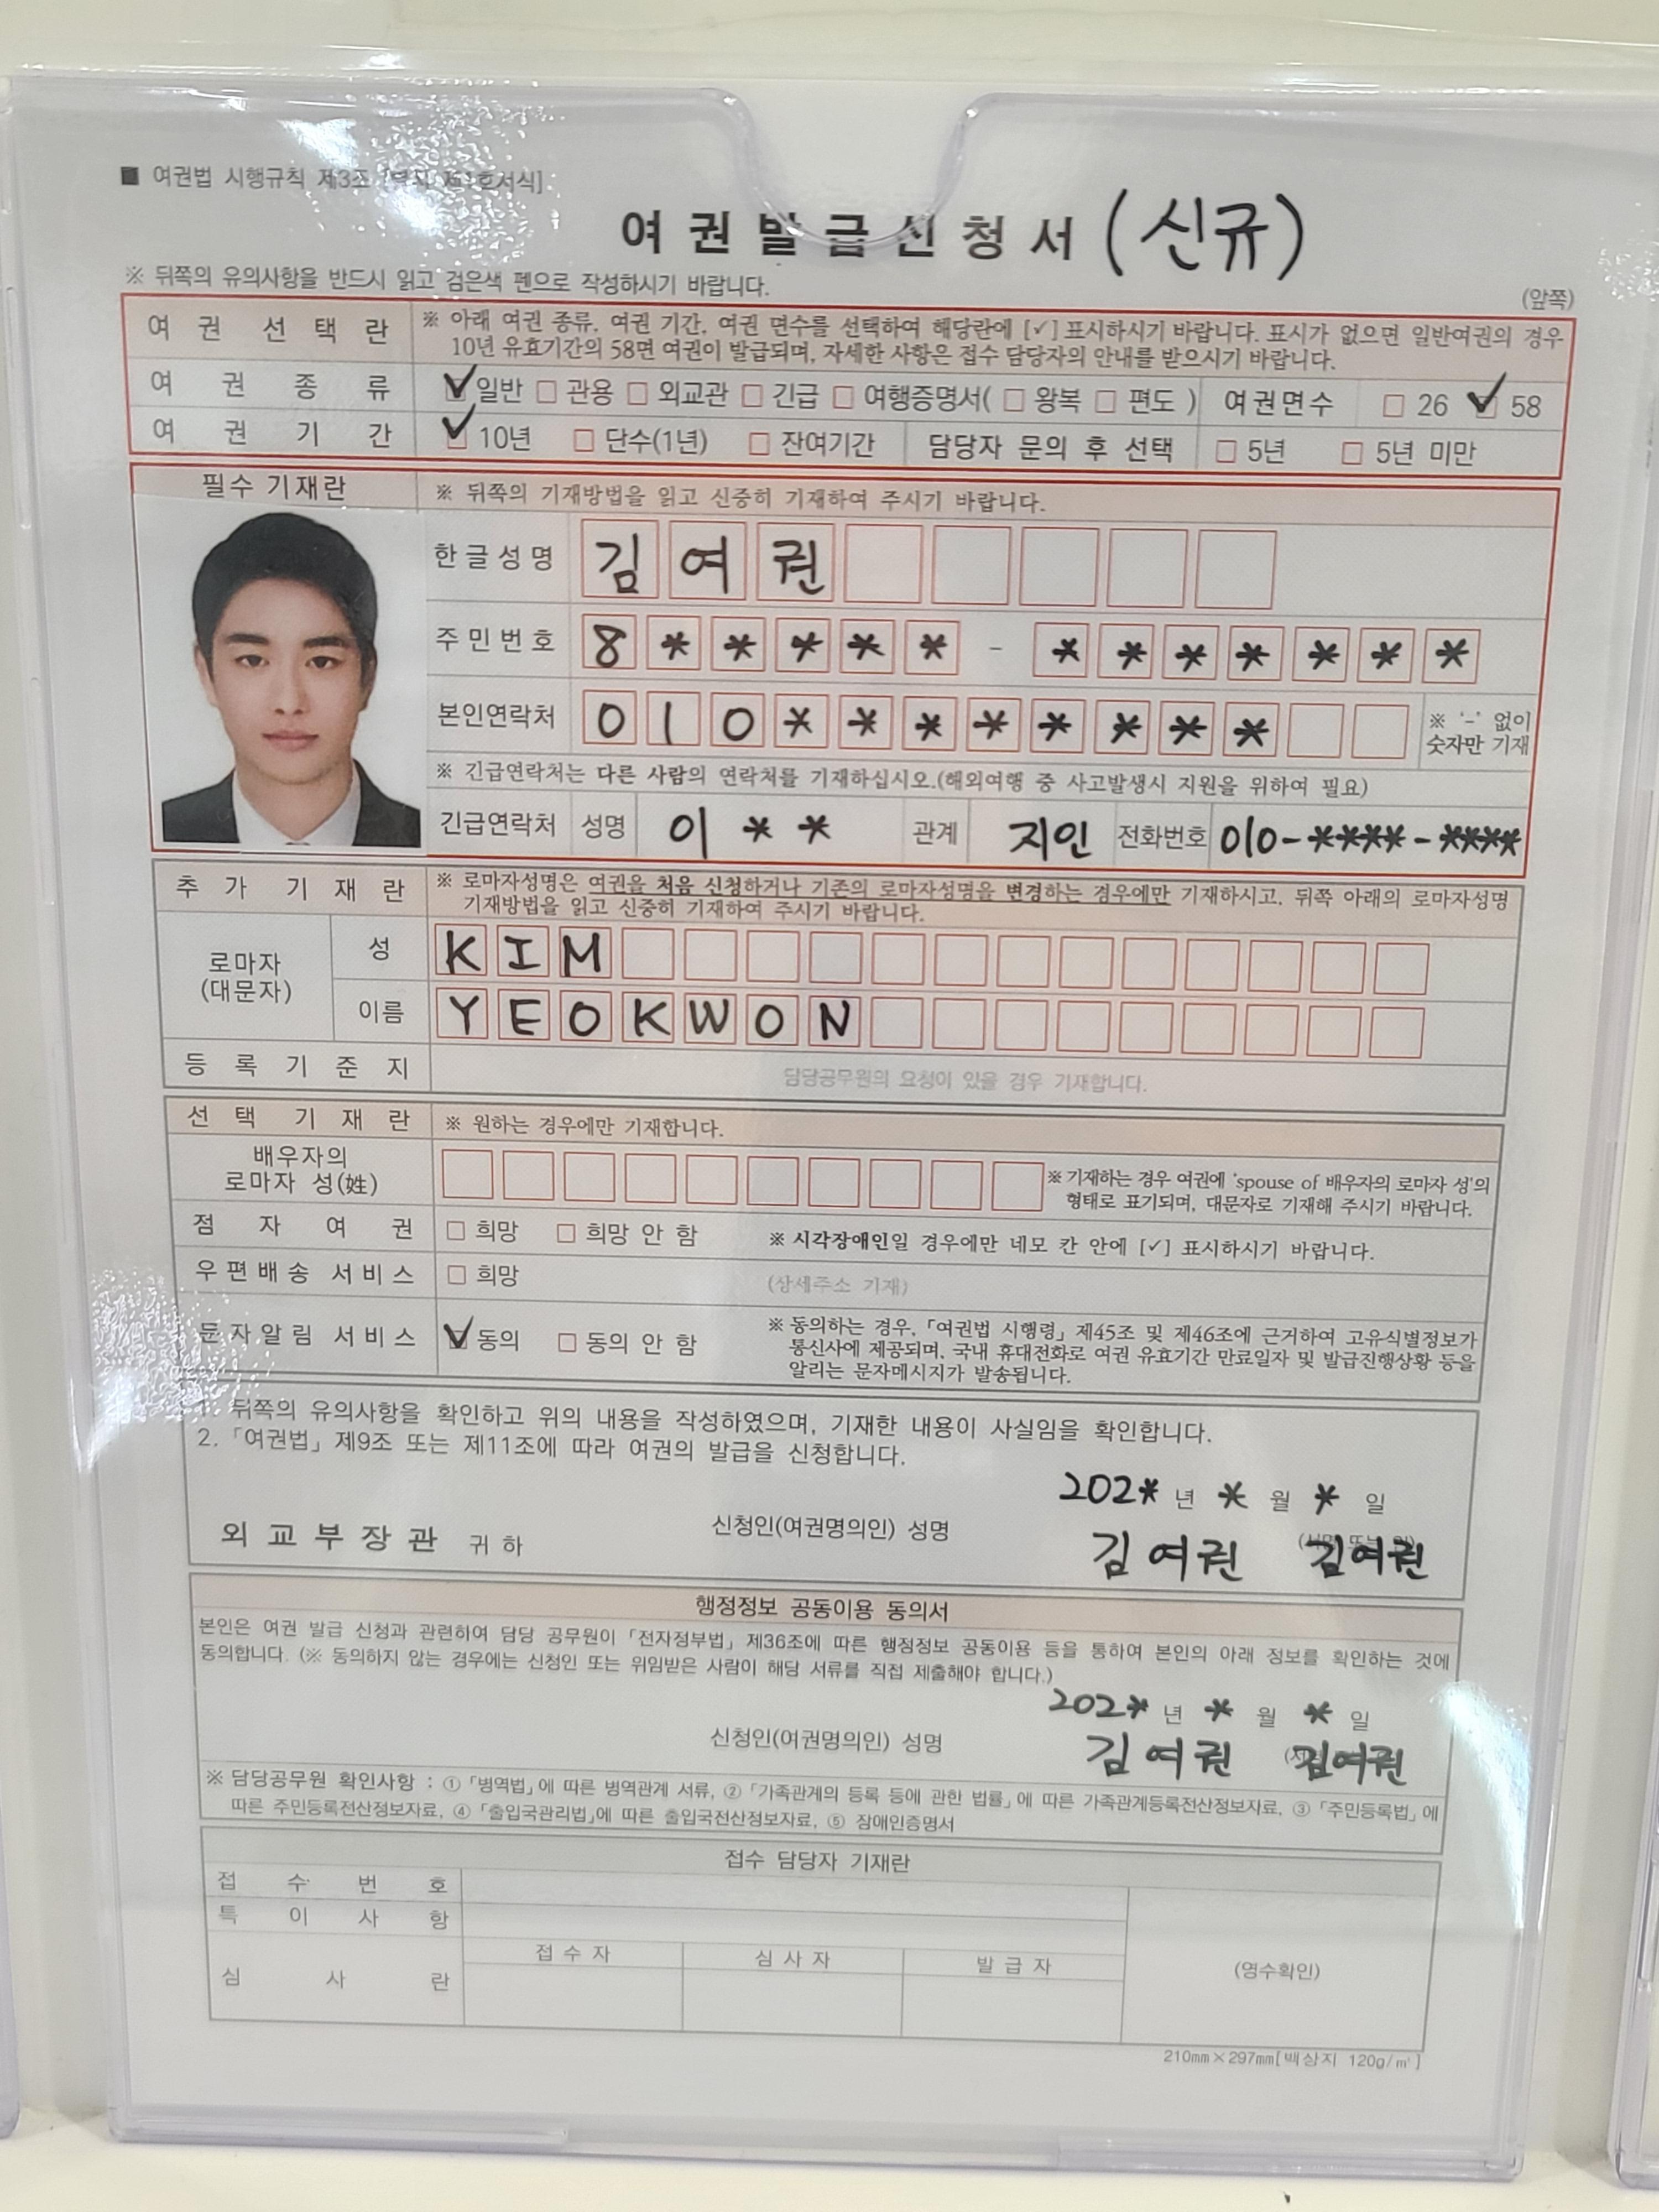 ■ 여권법 시행규칙 제3조 [별지 제1호서식]
여 권 발 급 신 청 서 (신규)
※ 뒤쪽의 유의사항을 반드시 읽고 검은색 펜으로 작성하시기 바랍니다.
(앞쪽)
여 권 선 택 란 ※ 아래 여권 종류, 여권 기간, 여권 면수를 선택하여 해당란에 [✓] 표시하시기 바랍니다. 표시가 없으면 일반여권의 경우
10년 유효기간의 58면 여권이 발급되며, 자세한 사항은 접수 담당자의 안내를 받으시기 바랍니다.
여 권 종 류 ☑ 일반 □ 관용 □ 외교관 □ 긴급 □ 여행증명서( □ 왕복 □ 편도 ) 여권면수 □ 26 ☑ 58
여 권 기 간 ☑ 10년 □ 단수(1년) □ 잔여기간 담당자 문의 후 선택 □ 5년 □ 5년 미만
필수 기재란 ※ 뒤쪽의 기재방법을 읽고 신중히 기재하여 주시기 바랍니다.
한글성명 김 여 권
주민번호 8 * * * * * - * * * * * * *
본인연락처 0 1 0 * * * * * * * * ※ '-' 없이
숫자만 기재
※ 긴급연락처는 다른 사람의 연락처를 기재하십시오.(해외여행 중 사고발생시 지원을 위하여 필요)
긴급연락처 성명 이 * * 관계 지인 전화번호 010-****-****
추 가 기 재 란 ※ 로마자성명은 여권을 처음 신청하거나 기존의 로마자성명을 변경하는 경우에만 기재하시고, 뒤쪽 아래의 로마자성명
기재방법을 읽고 신중히 기재하여 주시기 바랍니다.
로마자
(대문자)
성 K I M
이름 Y E O K W O N
등 록 기 준 지 담당공무원의 요청이 있을 경우 기재합니다.
선 택 기 재 란 ※ 원하는 경우에만 기재합니다.
배우자의
로마자 성(姓)
※ 기재하는 경우 여권에 'spouse of 배우자의 로마자 성'의
형태로 표기되며, 대문자로 기재해 주시기 바랍니다.
점 자 여 권 □ 희망 □ 희망 안 함 ※ 시각장애인일 경우에만 네모 칸 안에 [✓] 표시하시기 바랍니다.
우편배송 서비스 □ 희망 (상세주소 기재)
문자알림 서비스 ☑ 동의 □ 동의 안 함 ※ 동의하는 경우, 「여권법 시행령」 제45조 및 제46조에 근거하여 고유식별정보가
통신사에 제공되며, 국내 휴대전화로 여권 유효기간 만료일자 및 발급진행상황 등을
알리는 문자메시지가 발송됩니다.
1. 뒤쪽의 유의사항을 확인하고 위의 내용을 작성하였으며, 기재한 내용이 사실임을 확인합니다.
2. 「여권법」 제9조 또는 제11조에 따라 여권의 발급을 신청합니다.
202* 년 * 월 * 일
외 교 부 장 관 귀 하 신청인(여권명의인) 성명 김여권 김여권
행정정보 공동이용 동의서
본인은 여권 발급 신청과 관련하여 담당 공무원이 「전자정부법」 제36조에 따른 행정정보 공동이용 등을 통하여 본인의 아래 정보를 확인하는 것에
동의합니다. (※ 동의하지 않는 경우에는 신청인 또는 위임받은 사람이 해당 서류를 직접 제출해야 합니다.)
202* 년 * 월 * 일
신청인(여권명의인) 성명 김여권 김여권
※ 담당공무원 확인사항 : ① 「병역법」에 따른 병역관계 서류, ② 「가족관계의 등록 등에 관한 법률」에 따른 가족관계등록전산정보자료, ③ 「주민등록법」에
따른 주민등록전산정보자료, ④ 「출입국관리법」에 따른 출입국전산정보자료, ⑤ 장애인증명서
접수 담당자 기재란
접 수 번 호
특 이 사 항
심 사 란 접 수 자 심 사 자 발 급 자 (영수확인)
210mm×297mm[백상지 120g/㎡]